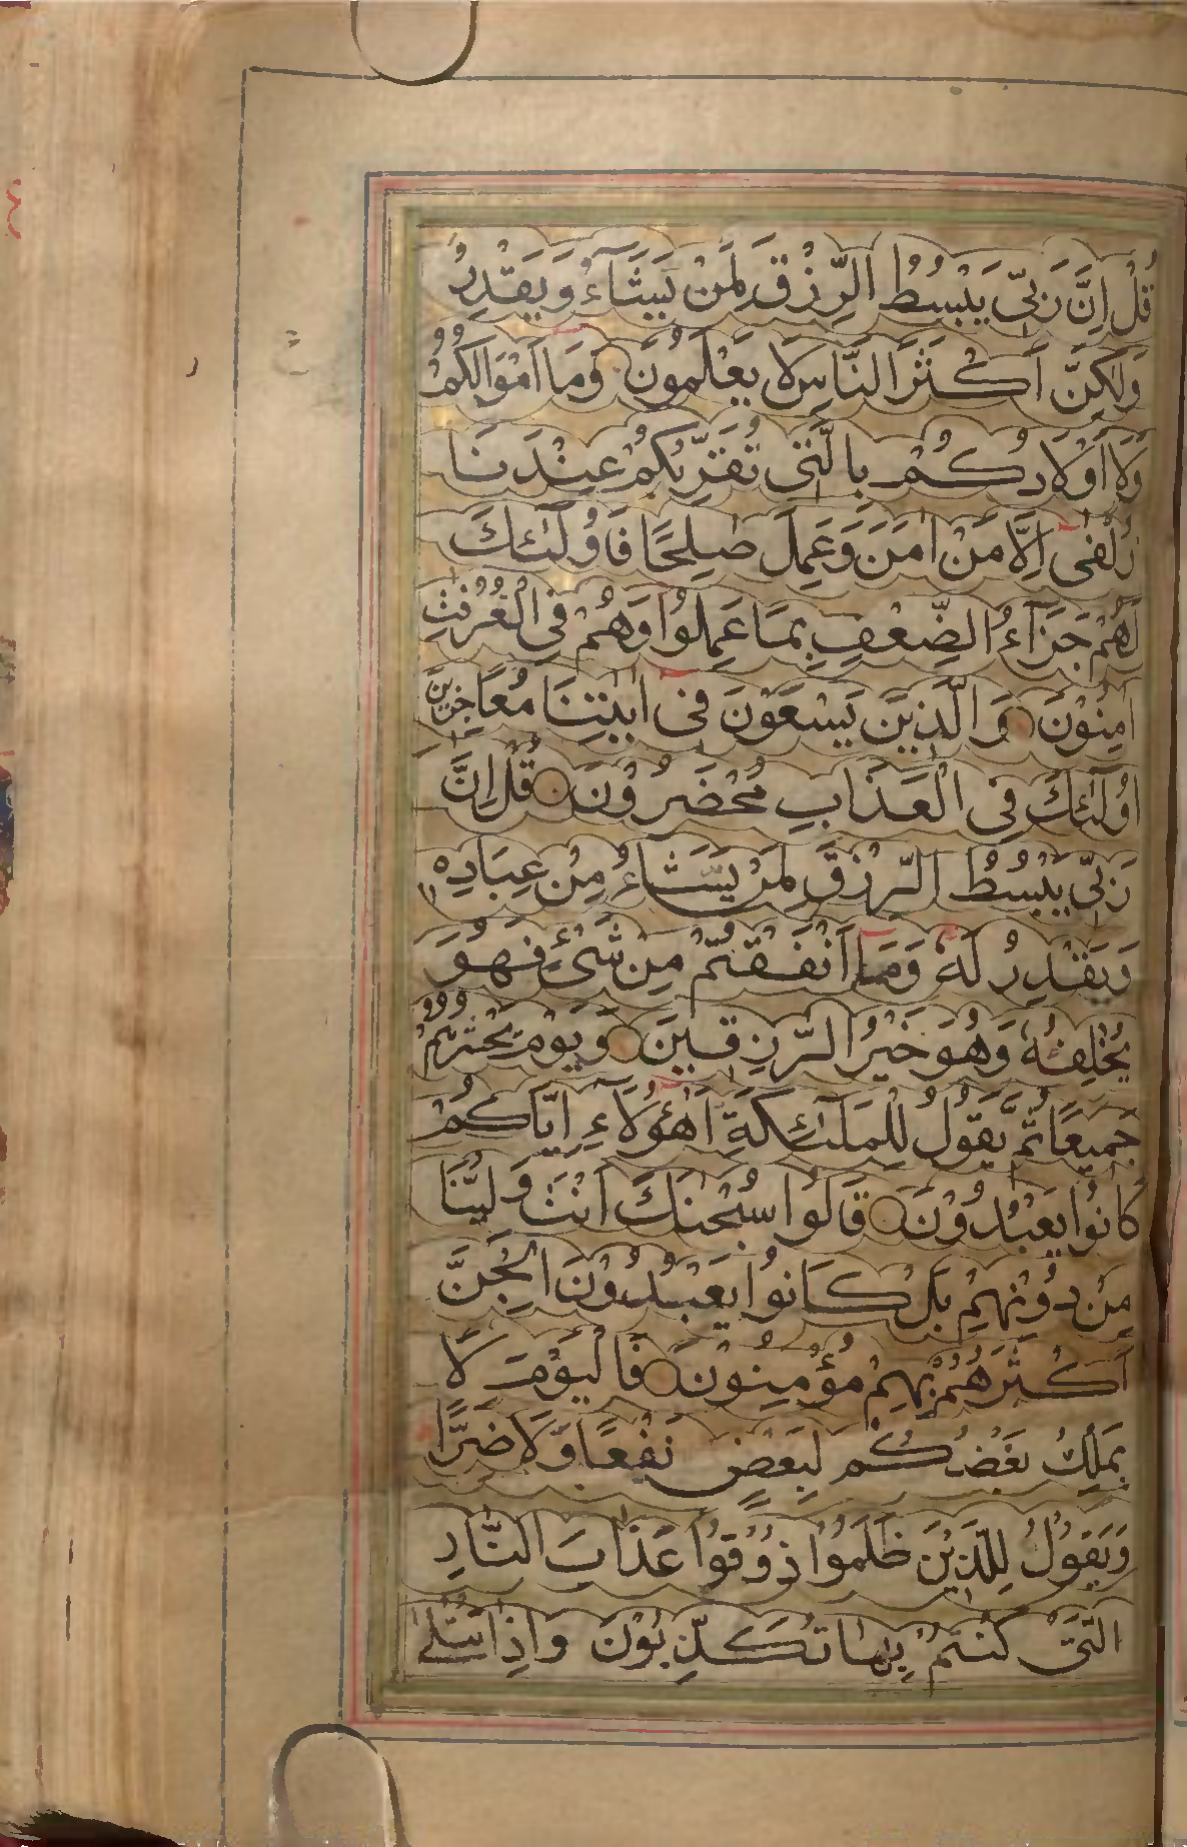 قُلْ اِنَّ رَبِّى يَبْسُطُ الرِّزْقَ لِمَنْ يَشَآءُ وَيَقْدِرُ
وَلٰكِنَّ اَكْثَرَ النَّاسِ لَا يَعْلَمُونَ وَمَا اَمْوَالُكُمْ
وَلَا اَوْلَادُكُمْ بِالَّتِى تُقَرِّبُكُمْ عِنْدَنَا
زُلْفٰى اِلَّا مَنْ اٰمَنَ وَعَمِلَ صٰلِحًا فَاُولٰٓئِكَ
لَهُمْ جَزَآءُ الضِّعْفِ بِمَا عَمِلُوا وَهُمْ فِى الْغُرُفٰتِ
اٰمِنُوْنَ وَالَّذِيْنَ يَسْعَوْنَ فِى اٰيٰتِنَا مُعَاجِزِيْنَ
اُولٰٓئِكَ فِى الْعَذَابِ مُحْضَرُوْنَ قُلْ اِنَّ
رَبِّى يَبْسُطُ الرِّزْقَ لِمَنْ يَّشَآءُ مِنْ عِبَادِهٖ
وَيَقْدِرُ لَهٗ وَمَا اَنْفَقْتُمْ مِنْ شَىْءٍ فَهُوَ
يُخْلِفُهٗ وَهُوَ خَيْرُ الرّٰزِقِيْنَ وَيَوْمَ يَحْشُرُهُمْ
جَمِيعًا ثُمَّ يَقُوْلُ لِلْمَلٰٓئِكَةِ اَهٰٓؤُلَآءِ اِيَّاكُمْ
كَانُوا يَعْبُدُوْنَ قَالُوا سُبْحٰنَكَ اَنْتَ وَلِيُّنَا
مِنْ دُوْنِهِمْ بَلْ كَانُوا يَعْبُدُوْنَ الْجِنَّ
اَكْثَرُهُمْ بِهِمْ مُؤْمِنُوْنَ فَالْيَوْمَ لَا
يَمْلِكُ بَعْضُكُمْ لِبَعْضٍ نَفْعًا وَّلَا ضَرًّا
وَيَقُوْلُ لِلَّذِيْنَ ظَلَمُوا ذُوْقُوْا عَذَابَ النَّارِ
الَّتِىْ كُنْتُمْ بِهَا تُكَذِّبُوْنَ وَاِذَا تُتْلٰى